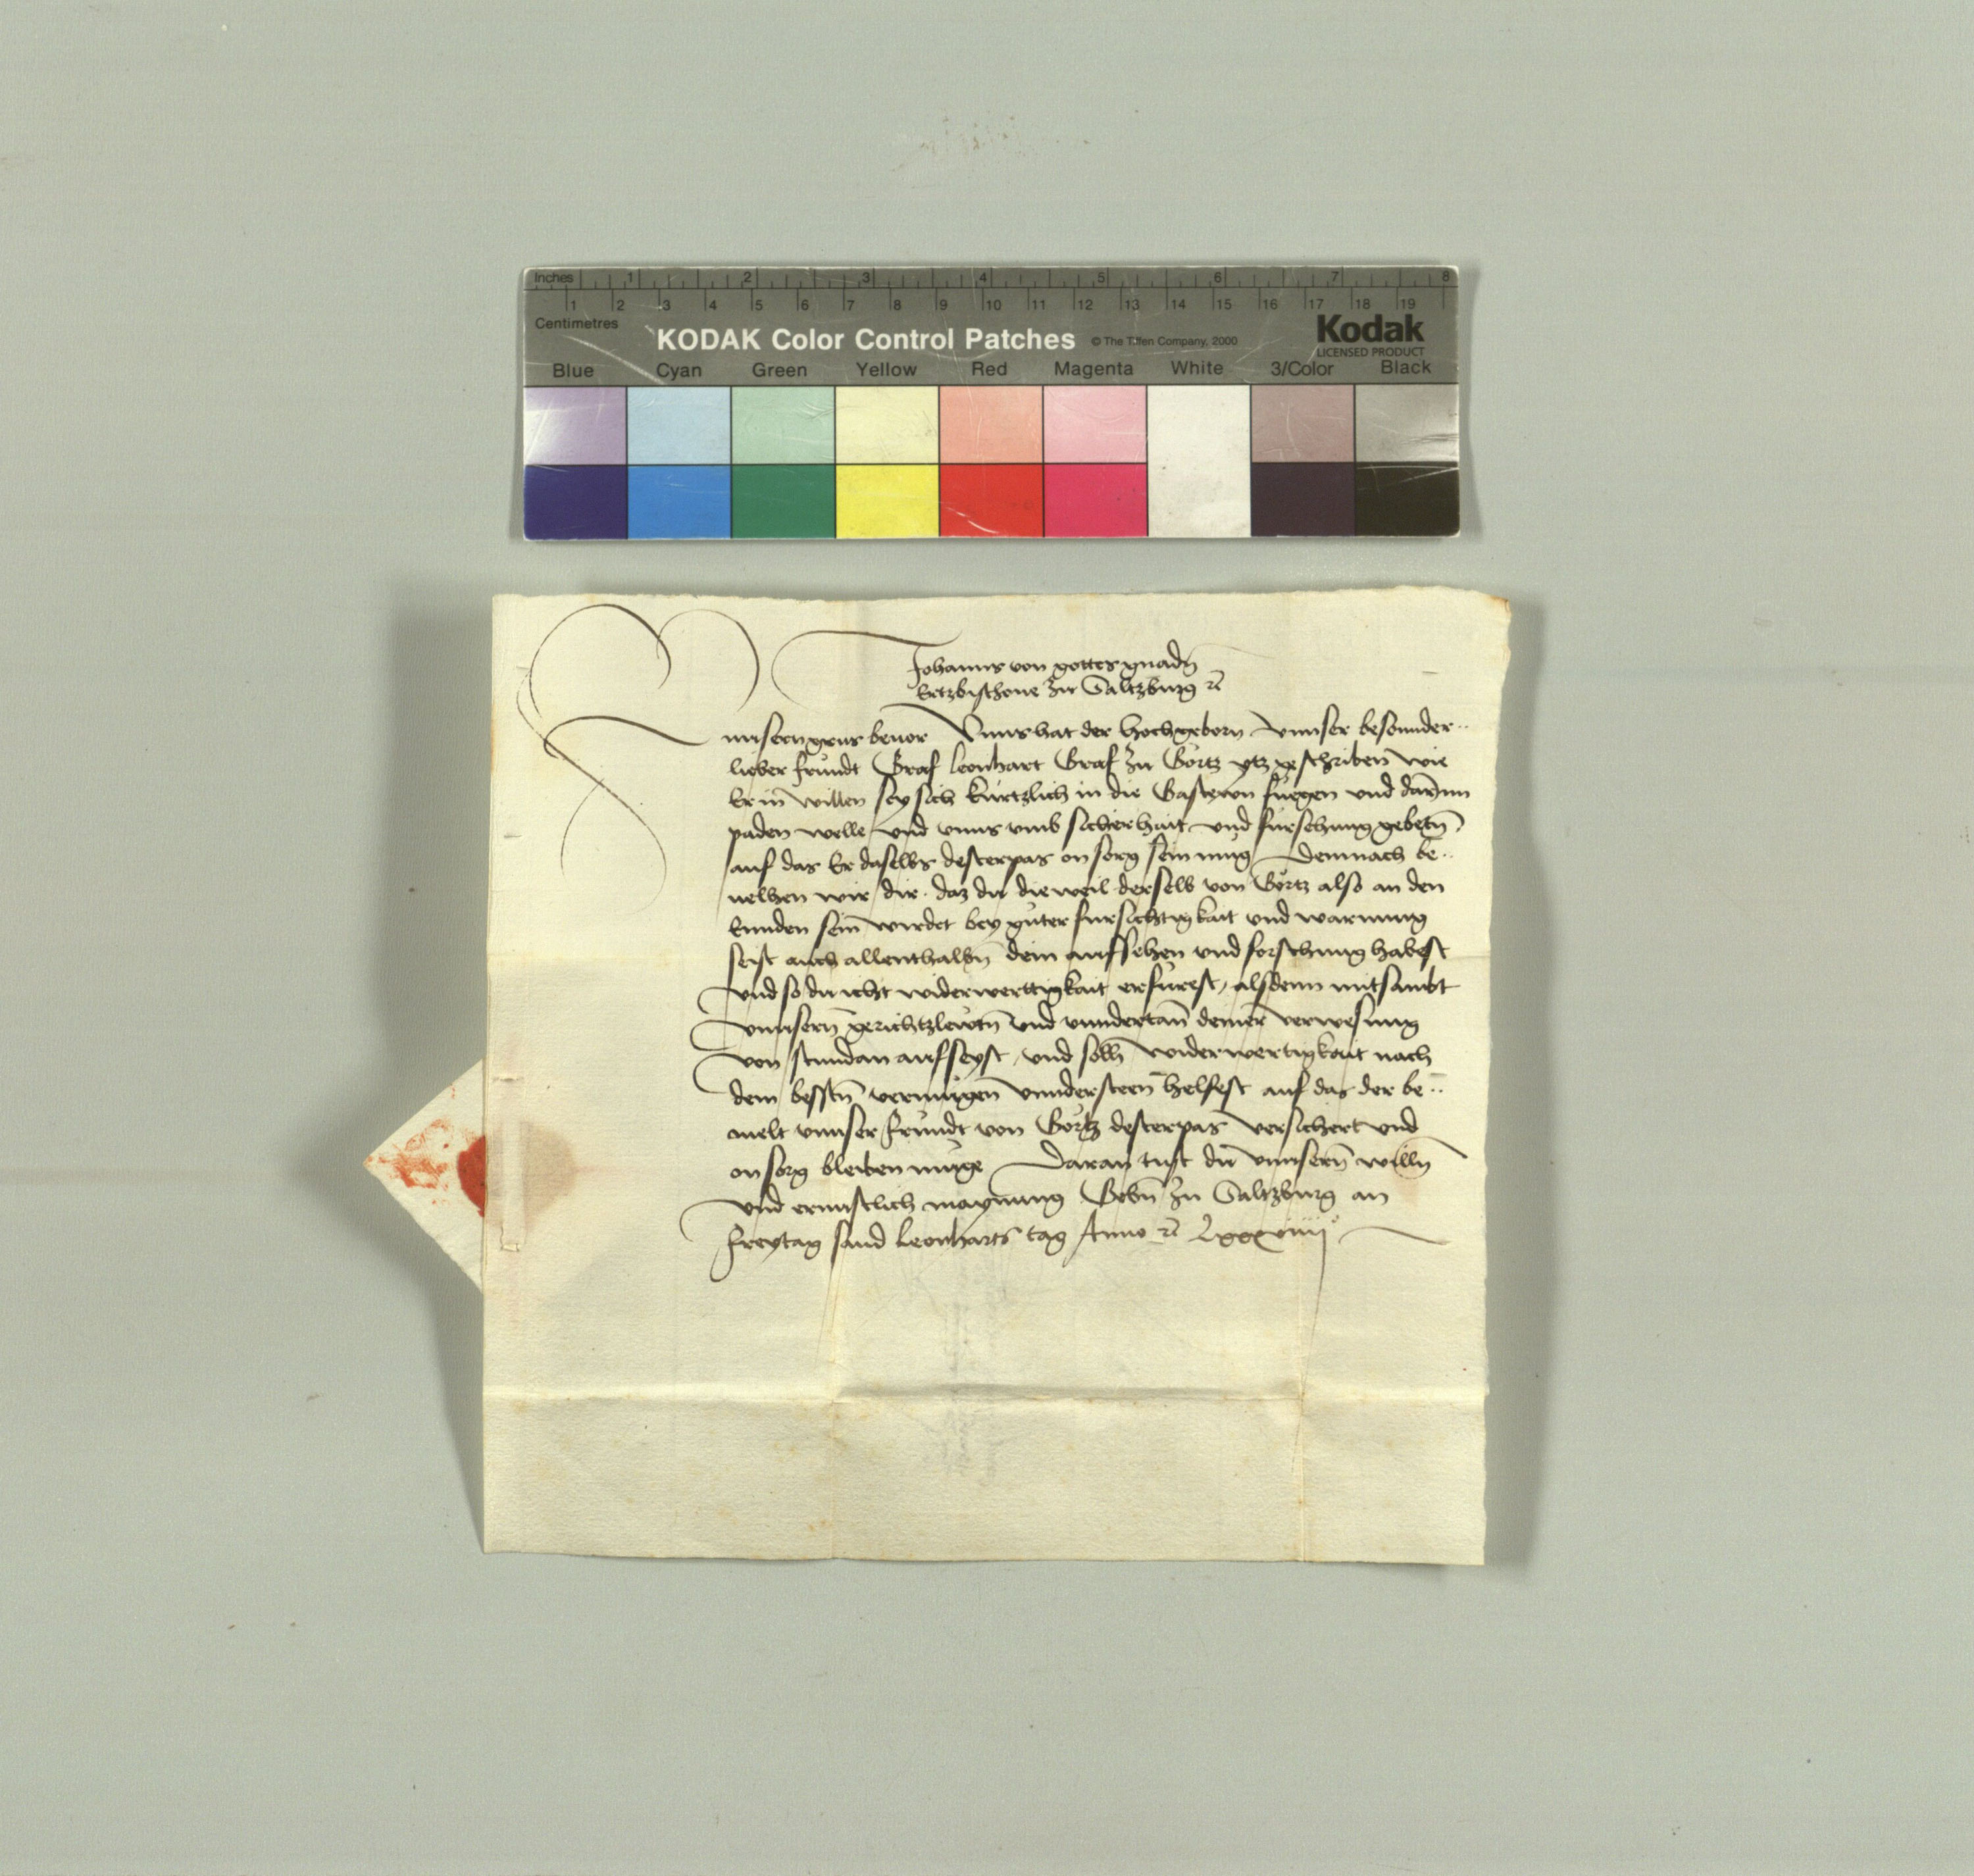 Inches 1 2 3 4 5 6 7 8
1 2 3 4 5 6 7 8 9 10 11 12 13 14 15 16 17 18 19
Centimetres
KODAK Color Control Patches © The Tiffen Company, 2000
Kodak
LICENSED PRODUCT
Blue Cyan Green Yellow Red Magenta White 3/Color Black
Johanns von gottes gnadn̄
Ertzbischoue zu Saltzburg ⁊c̄
unsern grus beuor Vnns hat der hochgeborn vnnser besonnder
lieber frůndt Graf Leonhart Graf zu Görtz ytz geschriben wie
Er in willen sey sich kürtzlich in die Gastewn fuegen vnd darinn
paden welle vnd vnns vmb sicherhait vnd fürsehung gebetn̄
auf das Er daselbs desterpas on sorg sein mug Demnach be
uelhen wir dir daz du dieweil derselb von Görtz also an den
ennden sein wirdet bey guter fursichtigkait vnd warnung
seist auch allenthalbn̄ dein aufsehen vnd forschung habest
vnd so du icht widerwerttigkait erfürest, alsdenn mitsambt
vnnsern̄ gerichtzlewtn̄ vnd vnndertan̄ deiner verwesung
von stundan aufseyst, vnd solh widerwertigkait nach
dem besstn̄ vermügen vnndersteen helfest auf das der be
melt vnnser frůndt von Görtz desterpas versichert vnd
on sorg bleiben müge Daran tust du vnnsern̄ willn̄
vnd ernnstlich maynung Gebn̄ zu Saltzburg an
freytag sand Leonharts tag Anno ⁊c̄ Lxxxviiij